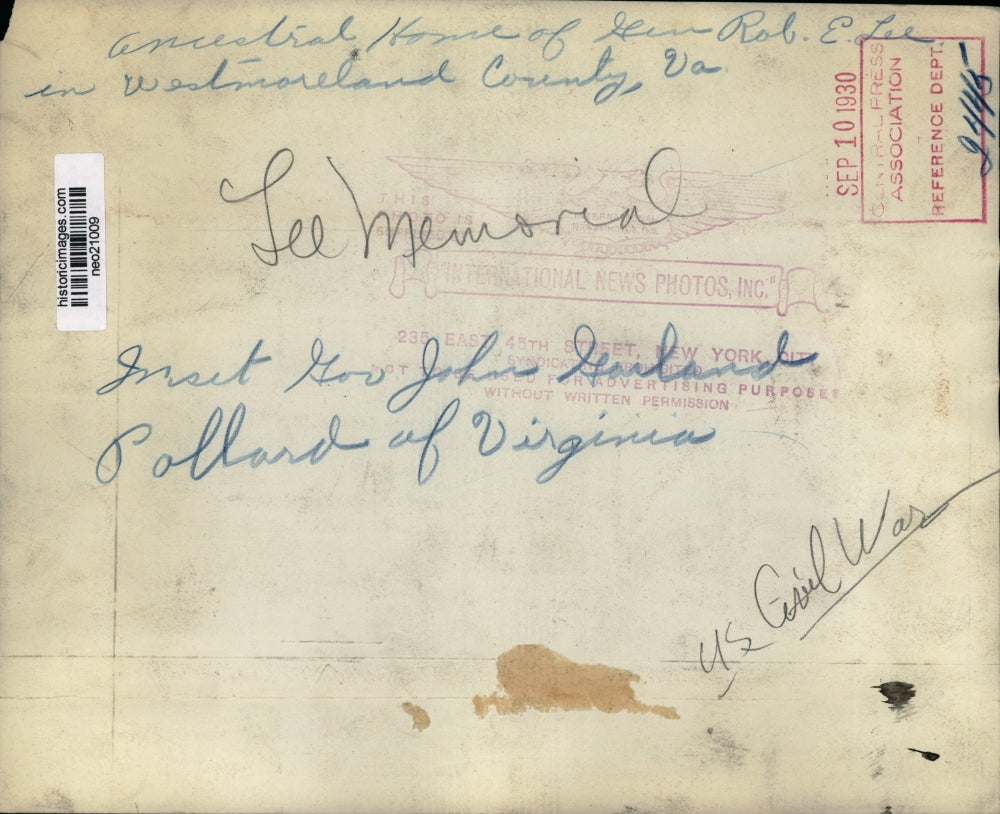 Ancestral Home of Gen Rob. E. Lee
in Westmoreland County, Va.
SEP 10 1930
CENTRAL PRESS
ASSOCIATION
REFERENCE DEPT.
historicimages.com
neo21009
Lee Memorial
THIS
PHOTO IS
"INTERNATIONAL NEWS PHOTOS, INC."
235 EAST 45TH STREET, NEW YORK CITY
NOT FOR ADVERTISING PURPOSES
WITHOUT WRITTEN PERMISSION
Inset Gov John Garland
Pollard of Virginia
US Civil War